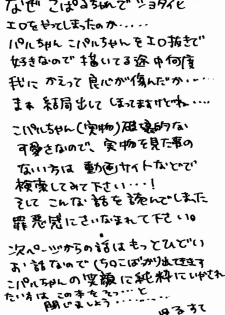 なぜ こぱるちゃんで ショタイヒ
エロをやってしまったのか・・・・・
パルちゃん コパルちゃんを エロ抜きで
好きなので 描いてる途中何度
我に かえって 良心が傷んだか・・・・
まあ 結局出して しまってますけどね・・・。
こパルちゃん(実物)破壊的な
可愛さなので、実物を見た事の
ない方は 動画サイトなどで
検索してみて下さい・・・!
そして こんな話を読んでしまった
罪悪感にさいなまれて下さい。
次ページからの話は もっとひどい
お話なので
こパルちゃんの笑顔に純粋にいやされ
たい方は この本をそっ・・・と
閉じましょう・・・・・・・